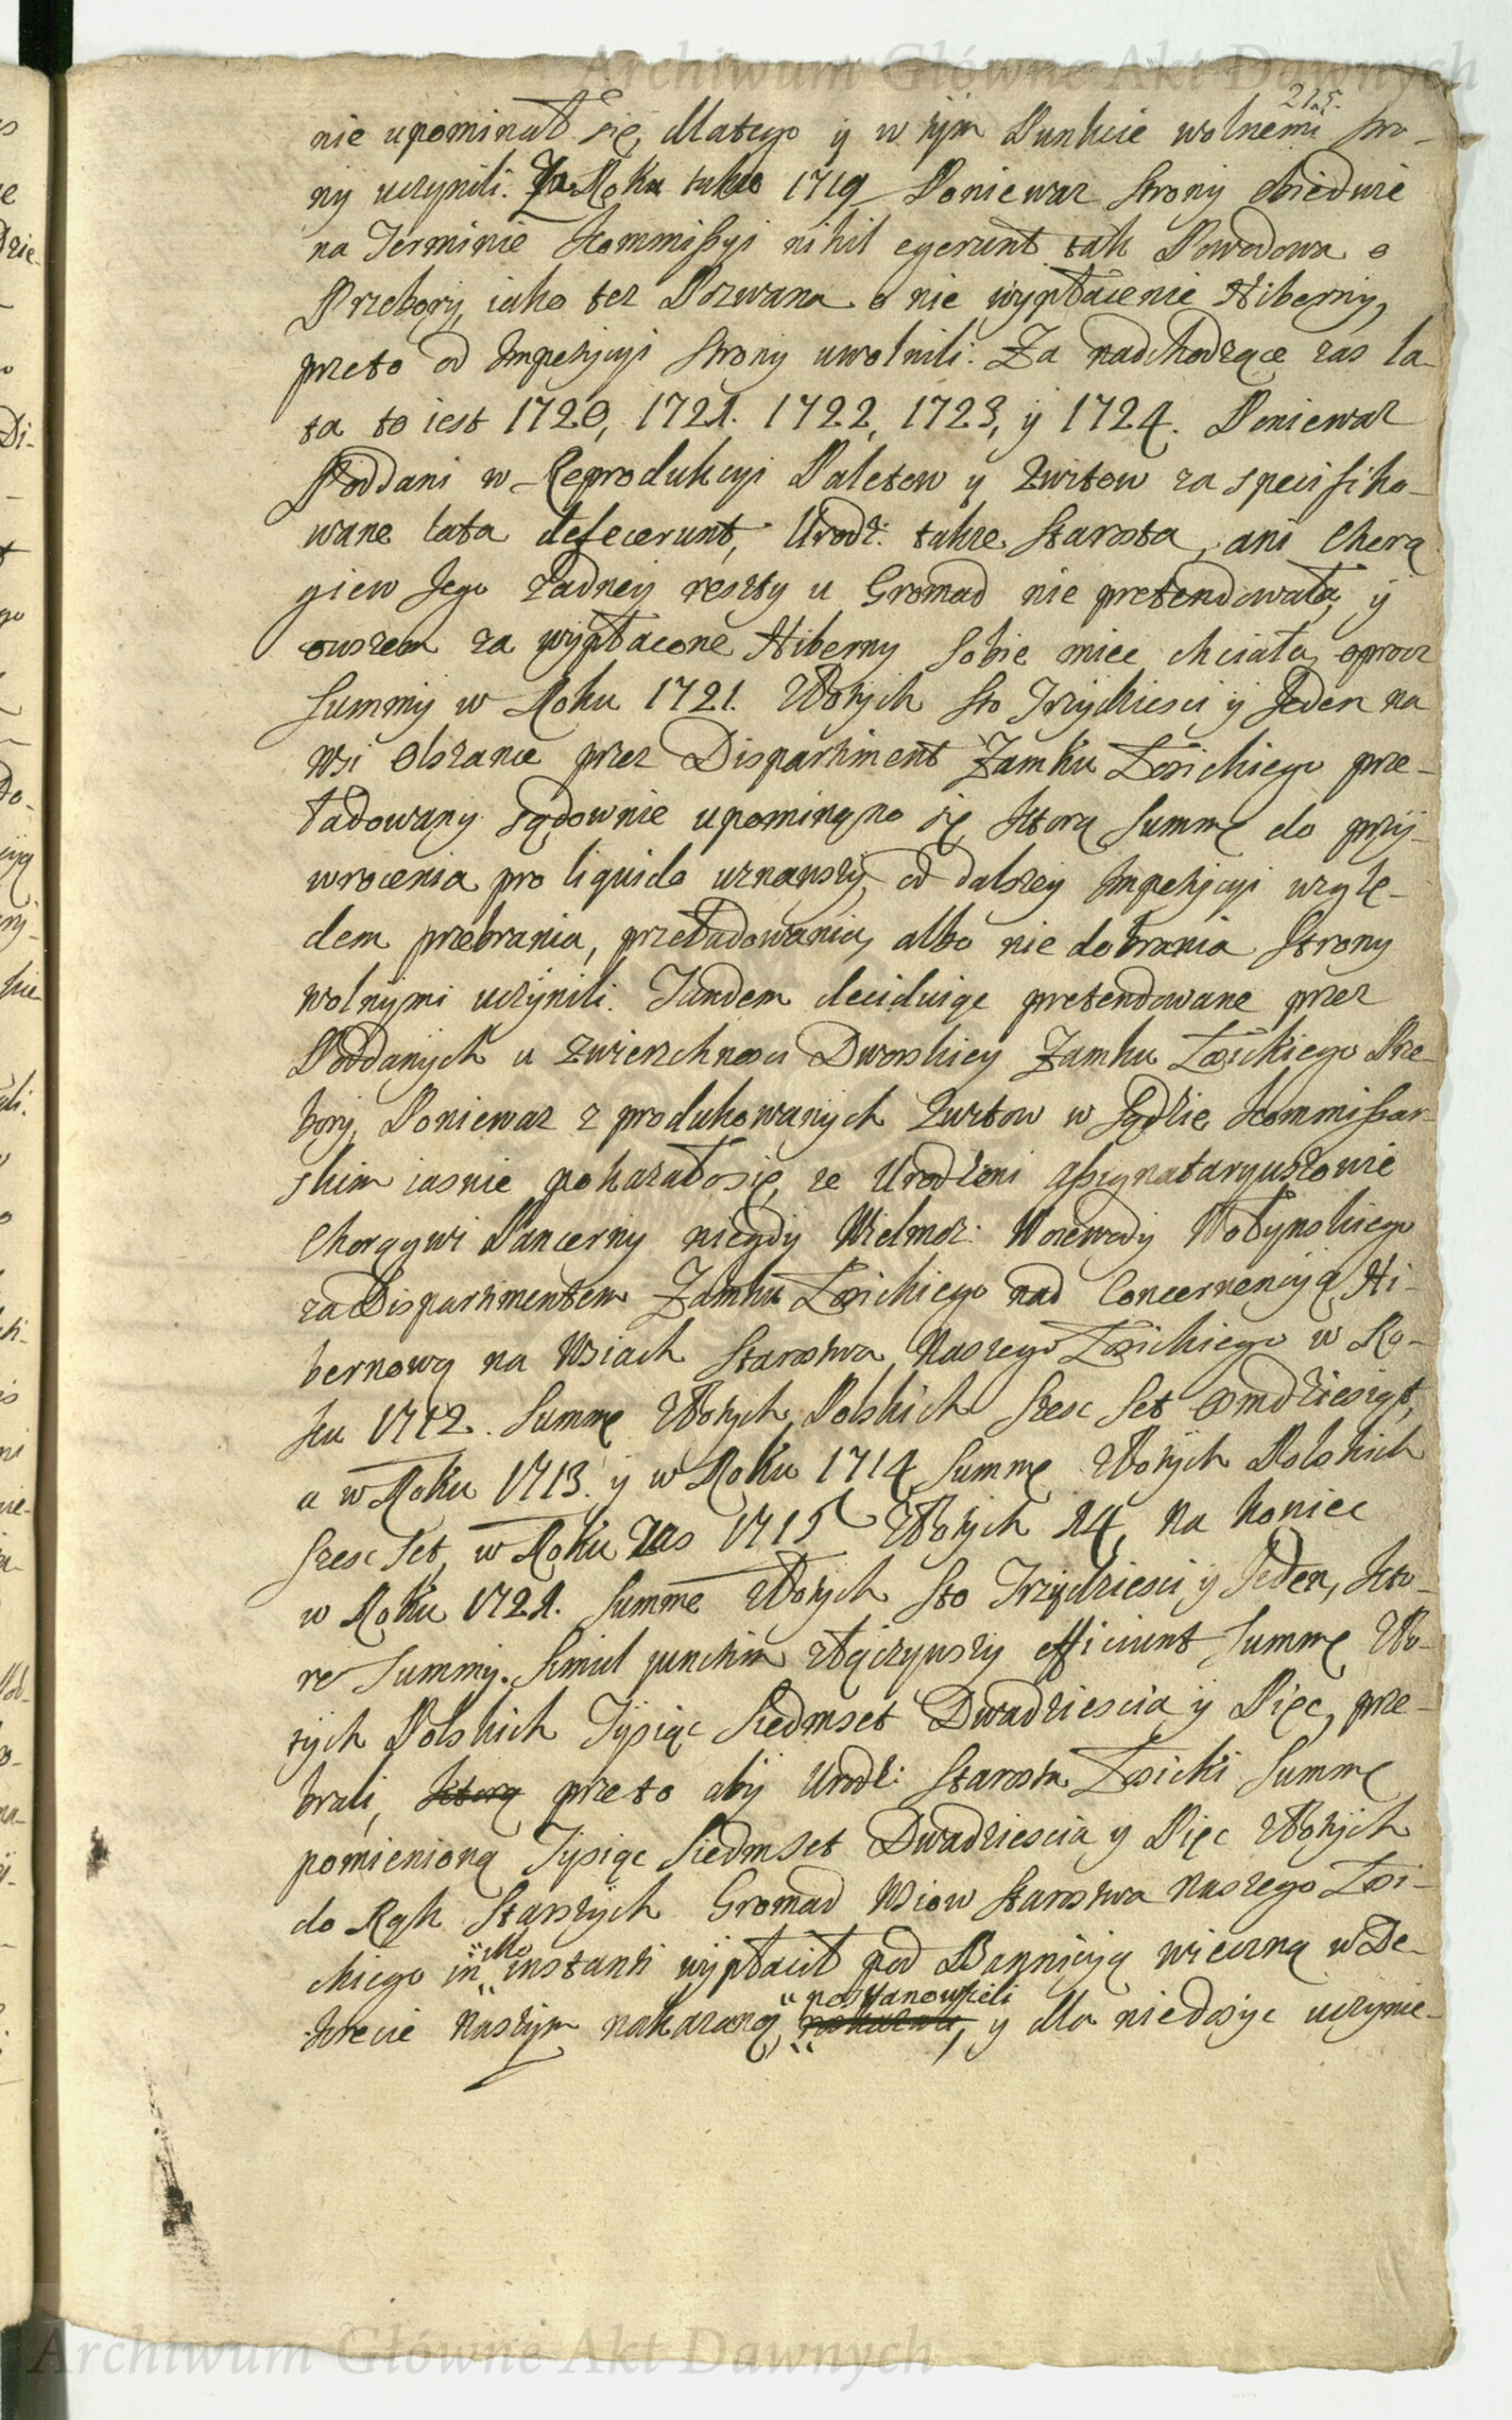 Archiwum Główne Akt Dawnych
215.
nie upominał się, dlatego y w tym Punkcie wolnemi stro-
ny uczynili. Za Roku także 1719 Poniewaz Strony obiedwie
na Terminie Kommissyi nihil egerunt tak Powodowa o
Przebory, iako tez Pozwana o nie wypłacenie Hiberny,
przeto od Impetycyi Strony uwolnili. Za nadchodzące zas la-
ta to iest 1720, 1721. 1722, 1723, y 1724. Poniewaz
Poddani w Reprodukcyi Paletow y kwitow za specifiko-
wane lata defecerunt, Urodz: takze Starosta, ani Chorą
giew Jego zadney reszty u Gromad nie pretendowała, y
owszem za wypłacone Hiberny sobie miec chciała, oprocz
Summy w Roku 1721. Złotych Sto Trzydziesci y Jeden na
Wsi Olszance przez Dispartiment Zamku Łosickiego prze-
ładowany sądownie upominano się, Ktorą Summę do przy-
wrocenia pro liquido uznawszy, od dalszey Impetycyi wzglę-
dem przebrania, przeładowania, albo nie dobrania Strony
wolnymi uczynili. Tandem deciduiąc pretendowane przez
Poddanych u zwierzchnosci Dworskiey Zamku Łosickiego Prze-
bory, Poniewaz z produkowanych kwitow w Sądzie Kommissar-
skim iasnie pokazało się, ze Urodzeni Assygnataryuszowie
Chorągwi Pancerny niegdy Wielmoz: Woiewody Wołynskiego
za Dispartimentem Zamku Łosickiego nad Concernencyią Hi-
bernową na Wsiach Starostwa Naszego Łosickiego w Ro-
ku 1712. Summę Złotych Polskich Szesc Set Osmdziesiąt,
a w Roku 1713. y w Roku 1714 Summę Złotych Polskich
Szesc Set, w Roku zas 1715 Złotych 24, na koniec
w Roku 1721. Summę Złotych Sto Trzydziesci y Jeden, Kto-
re Summy Simul junctim złączywszy efficiunt Summę Zło-
tych Polskich Tysiąc Siedmset Dwadziescia y Pięc, prze-
brali, Ktorą przeto aby Urodz: Starosta Łosicki Summę
pomienioną Tysiąc Siedmset Dwadziescia y Pięc Złotych
do Rąk Starszych Gromad Wsiow Starostwa Naszego Łosi-
ckiego in illo instanti wypłacił pod Bannicyią wieczną w De-
krecie Naszym nakazaną postanowieli, y dla niedosyc uczynie-
Archiwum Główne Akt Dawnych